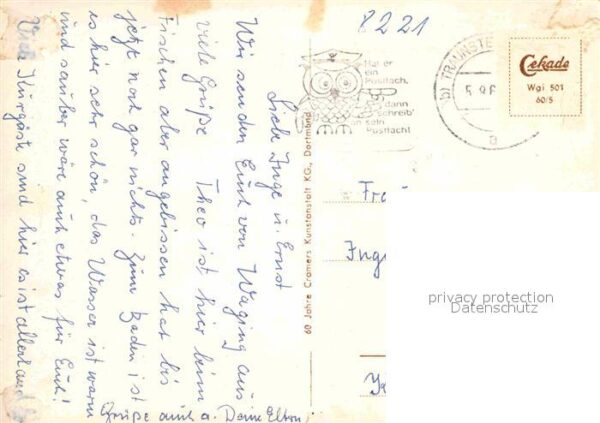 8221
Hat er
ein
Postfach,
dann
schreib'
an sein
Postfach!
b) TRAUNSTE
5.9.6
a
Cekade
Wgi 501
60/5
60 Jahre Cramers Kunstanstalt KG., Dortmund
Fra
Inge
privacy protection
Datenschutz
Liebe Inge u. Ernst
Wir senden Euch von Waging aus
viele Grüße Theo ist hier beim
Fischen aber angebissen hat bis
jetzt noch gar nichts. Zum Baden ist
es hier sehr schön, das Wasser ist warm
und sauber wäre auch etwas für Euch!
Viele Kurgäste sind hier es ist allerhand
Grüße auch a. Deine Eltern,